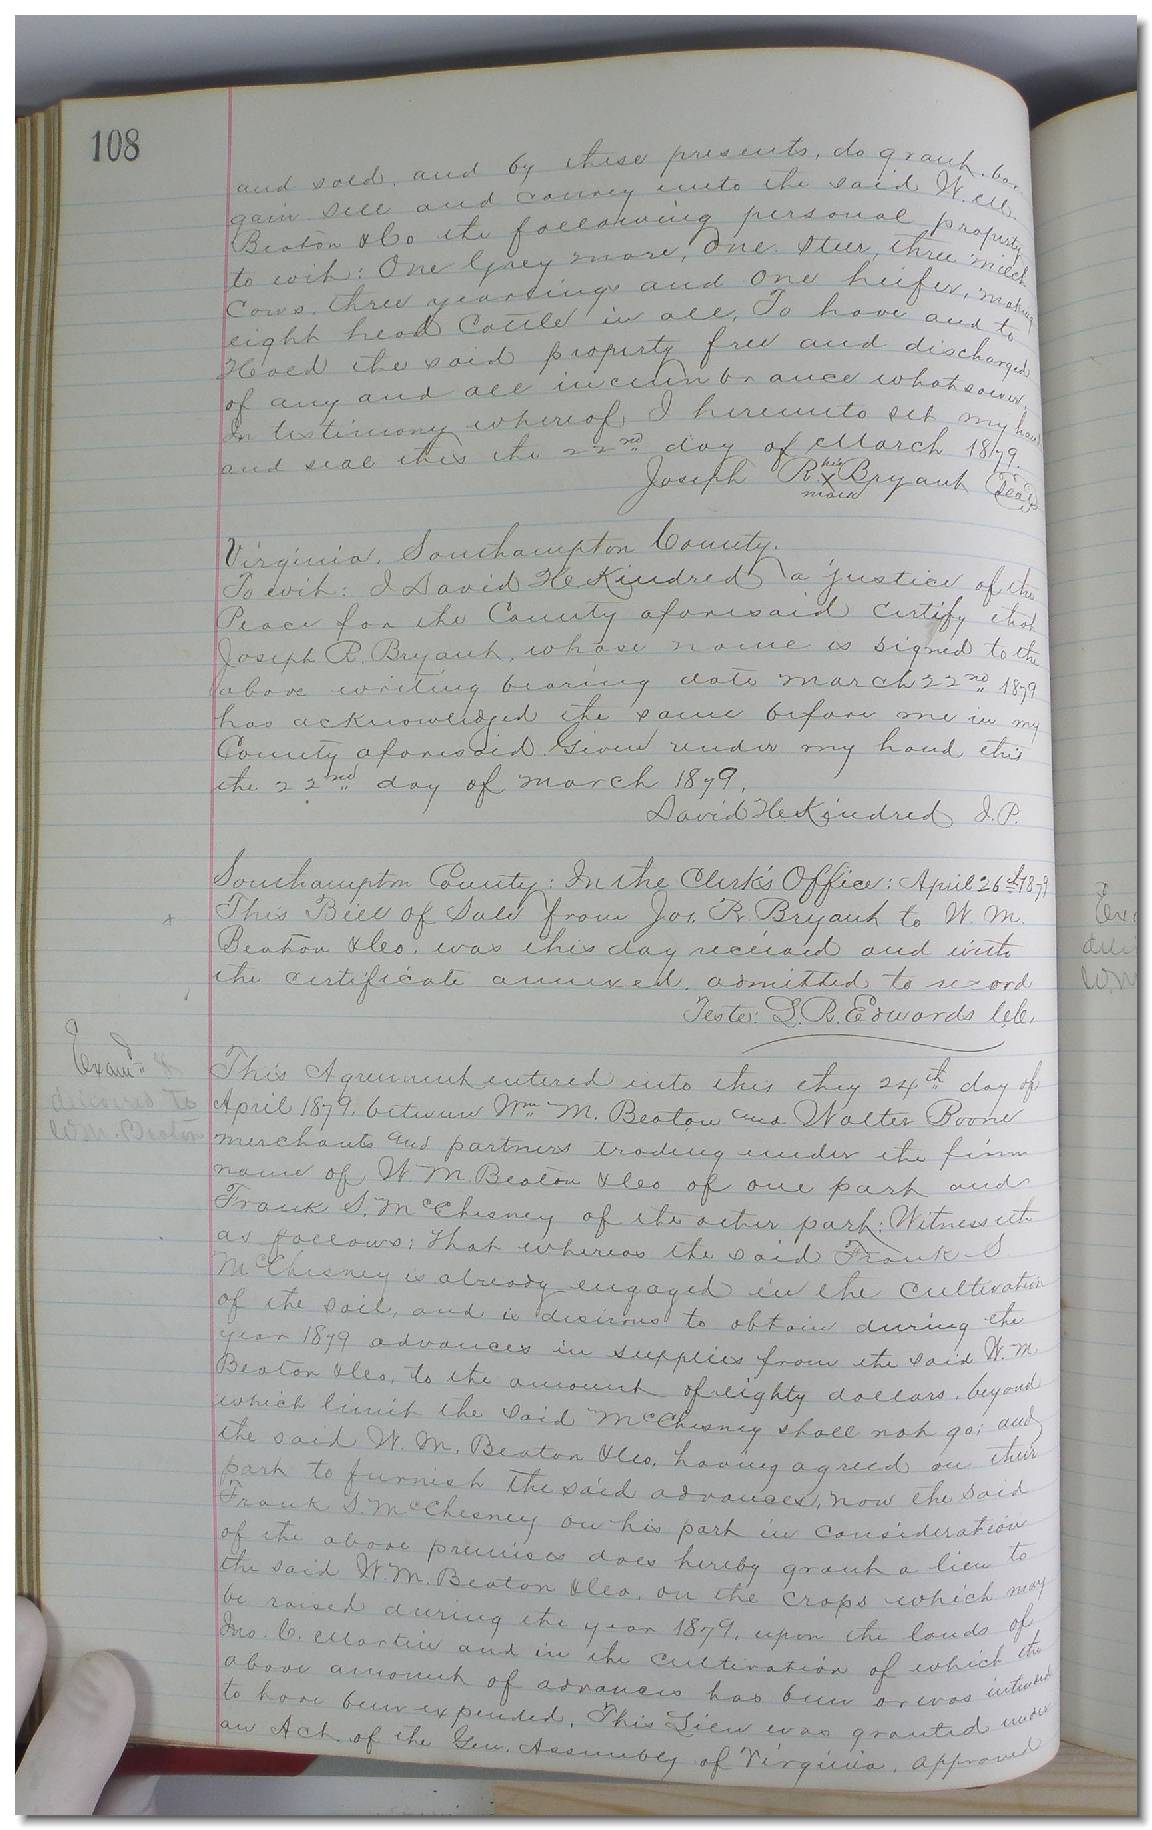 108
and sold, and by these presents, do grant, bar-
gain sell and convey unto the said W. M.
Beaton & Co the following personal property
to wit: One Grey mare, One Steer, three milch
Cows, three yearlings and One heifer, making
eight head Cattle in all, To have and to
Hold the said property free and discharged
of any and all incumbrance whatsoever,
In testimony whereof, I hereunto set my hand
and seal this the 22nd day of March 1879.
his
Joseph R. X Bryant (Seal)
mark
Virginia, Southampton County.
To wit: I David H Kindred a justice of the
Peace for the County aforesaid certify that
Joseph R. Bryant, whose name is signed to the
above writing bearing date March 22nd 1879
has acknowledged the same before me in my
County aforesaid. Given under my hand this
the 22nd day of March 1879.
David H Kindred J.P.
Southampton County: In the Clerk's Office: April 26th 1879
This Bill of Sale from Jos. R. Bryant to W. M.
Beaton & Co. was this day received and with
the certificate annexed, admitted to record
Teste: L. R. Edwards C.C.
Examd &
delivered to
W.M. Beaton
This Agreement entered into this they 24th day of
April 1879. between Wm M. Beaton and Walter Boone
merchants and partners trading under the firm
name of W. M. Beaton & Co of one part and
Frank S. McChesney of the other part: Witnesseth
as follows: That whereas the said Frank S
McChesney is already engaged in the cultivation
of the soil, and is desirous to obtain during the
year 1879 advances in supplies from the said W. M.
Beaton & Co. to the amount of eighty dollars, beyond
which limit the said McChesney shall not go; and
the said W. M. Beaton & Co. having agreed on their
part to furnish the said advances, now the said
Frank S. McChesney on his part in consideration
of the above premises does hereby grant a lien to
the said W. M. Beaton & Co. on the crops which may
be raised during the year 1879, upon the lands of
Jno. C. Martin and in the cultivation of which the
above amount of advances has been or was intended
to have been expended. This Lien was granted under
an Act of the Gen. Assembly of Virginia, approved